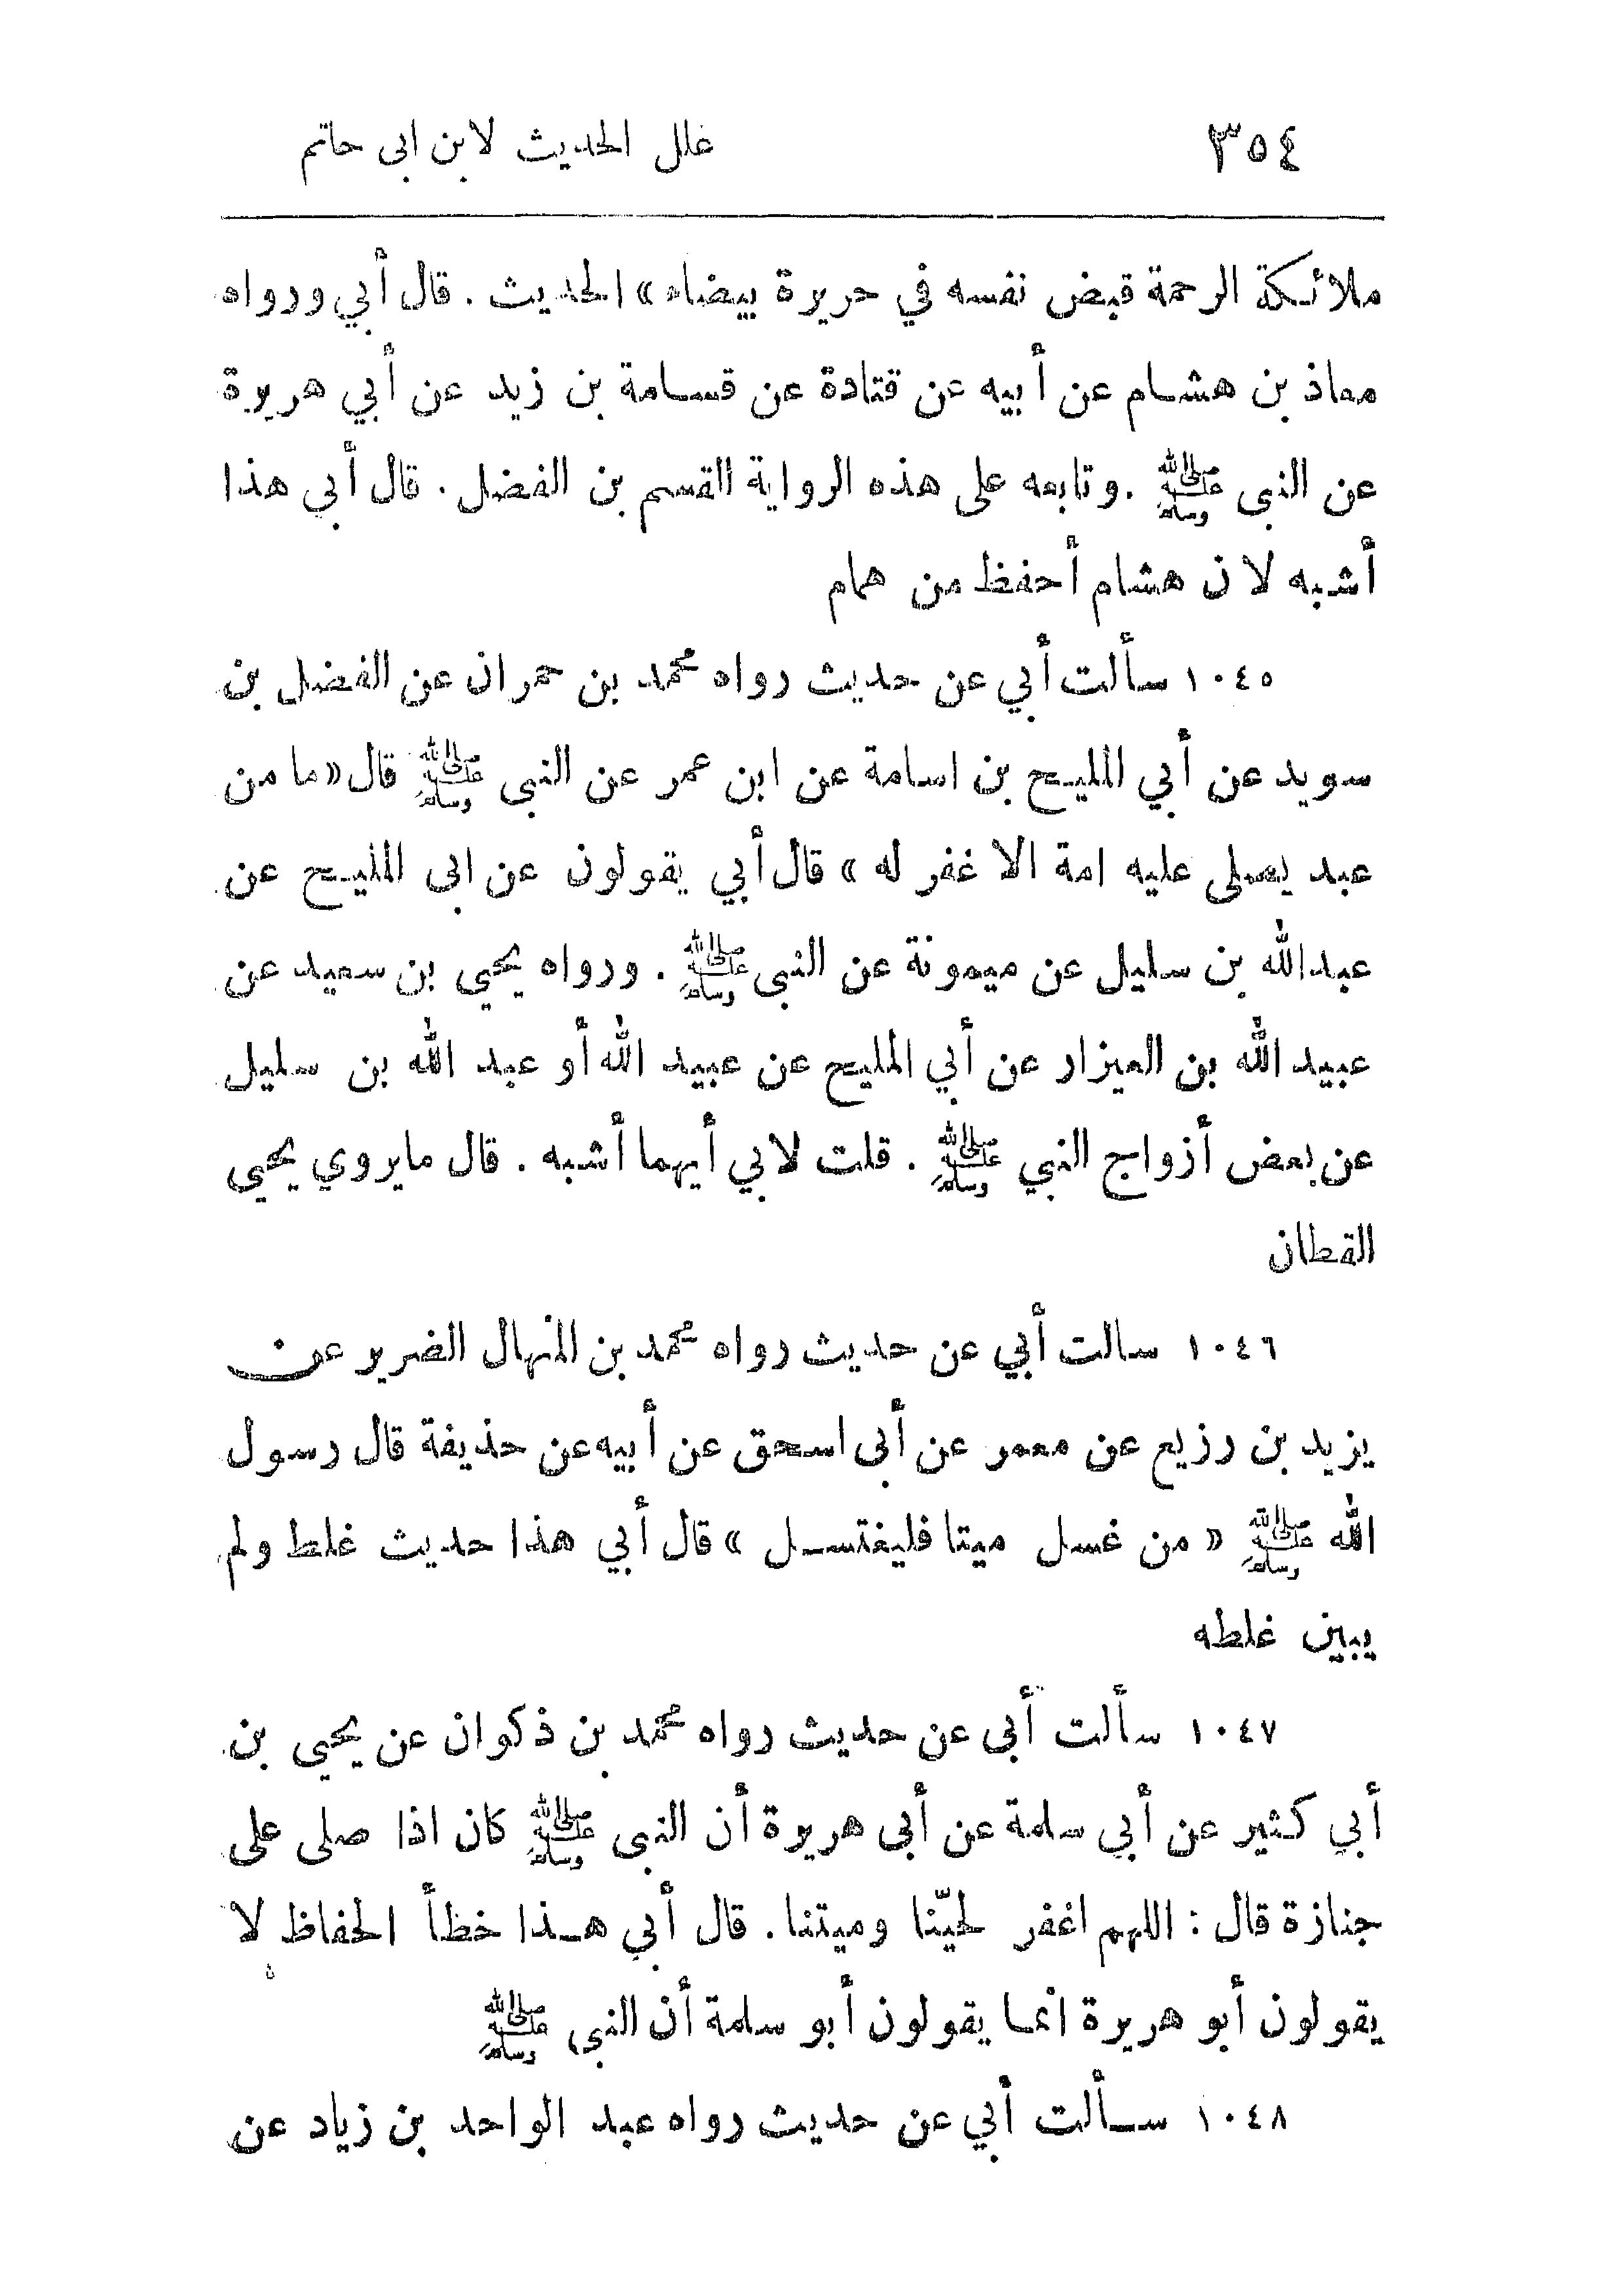 ٣٥٤ علل الحديث لابن ابى حاتم
ملائكة الرحمة قبض نفسه في حريرة بيضاء» الحديث . قال أبي ورواه
معاذ بن هشام عن أبيه عن قتادة عن قسامة بن زيد عن أبي هريرة
عن النبى ﷺ . وتابعه على هذه الرواية القسم بن الفضل . قال أبي هذا
أشبه لان هشام أحفظ من همام
١٠٤٥ سألت أبي عن حديث رواه محمد بن حمران عن الفضل بن
سويد عن أبي المليح بن اسامة عن ابن عمر عن النبى ﷺ قال «ما من
عبد يصلى عليه امة الا غفر له » قال أبي يقولون عن ابى المليح عن
عبدالله بن سليل عن ميمونة عن النبى ﷺ . ورواه يحيي بن سعيد عن
عبيد الله بن العيزار عن أبي المليح عن عبيد الله أو عبد الله بن سليل
عن بعض أزواج النبي ﷺ . قلت لابي أيهما أشبه . قال مايروي يحيى
القطان
١٠٤٦ سالت أبي عن حديث رواه محمد بن المنهال الضرير عن
يزيد بن رزيع عن معمر عن أبى اسحق عن أبيه عن حذيفة قال رسول
الله ﷺ « من غسل ميتا فليغتسل » قال أبي هذا حديث غلط ولم
يبين غلطه
١٠٤٧ سألت أبى عن حديث رواه محمد بن ذكوان عن يحيى بن
أبي كثير عن أبي سلمة عن أبى هريرة أن النبى ﷺ كان اذا صلى على
جنازة قال : اللهم اغفر لحيّنا وميتنا . قال أبي هذا خظأ الحفاظ لا
يقولون أبو هريرة انما يقولون أبو سلمة أن النبى ﷺ
١٠٤٨ سألت أبي عن حديث رواه عبد الواحد بن زياد عن